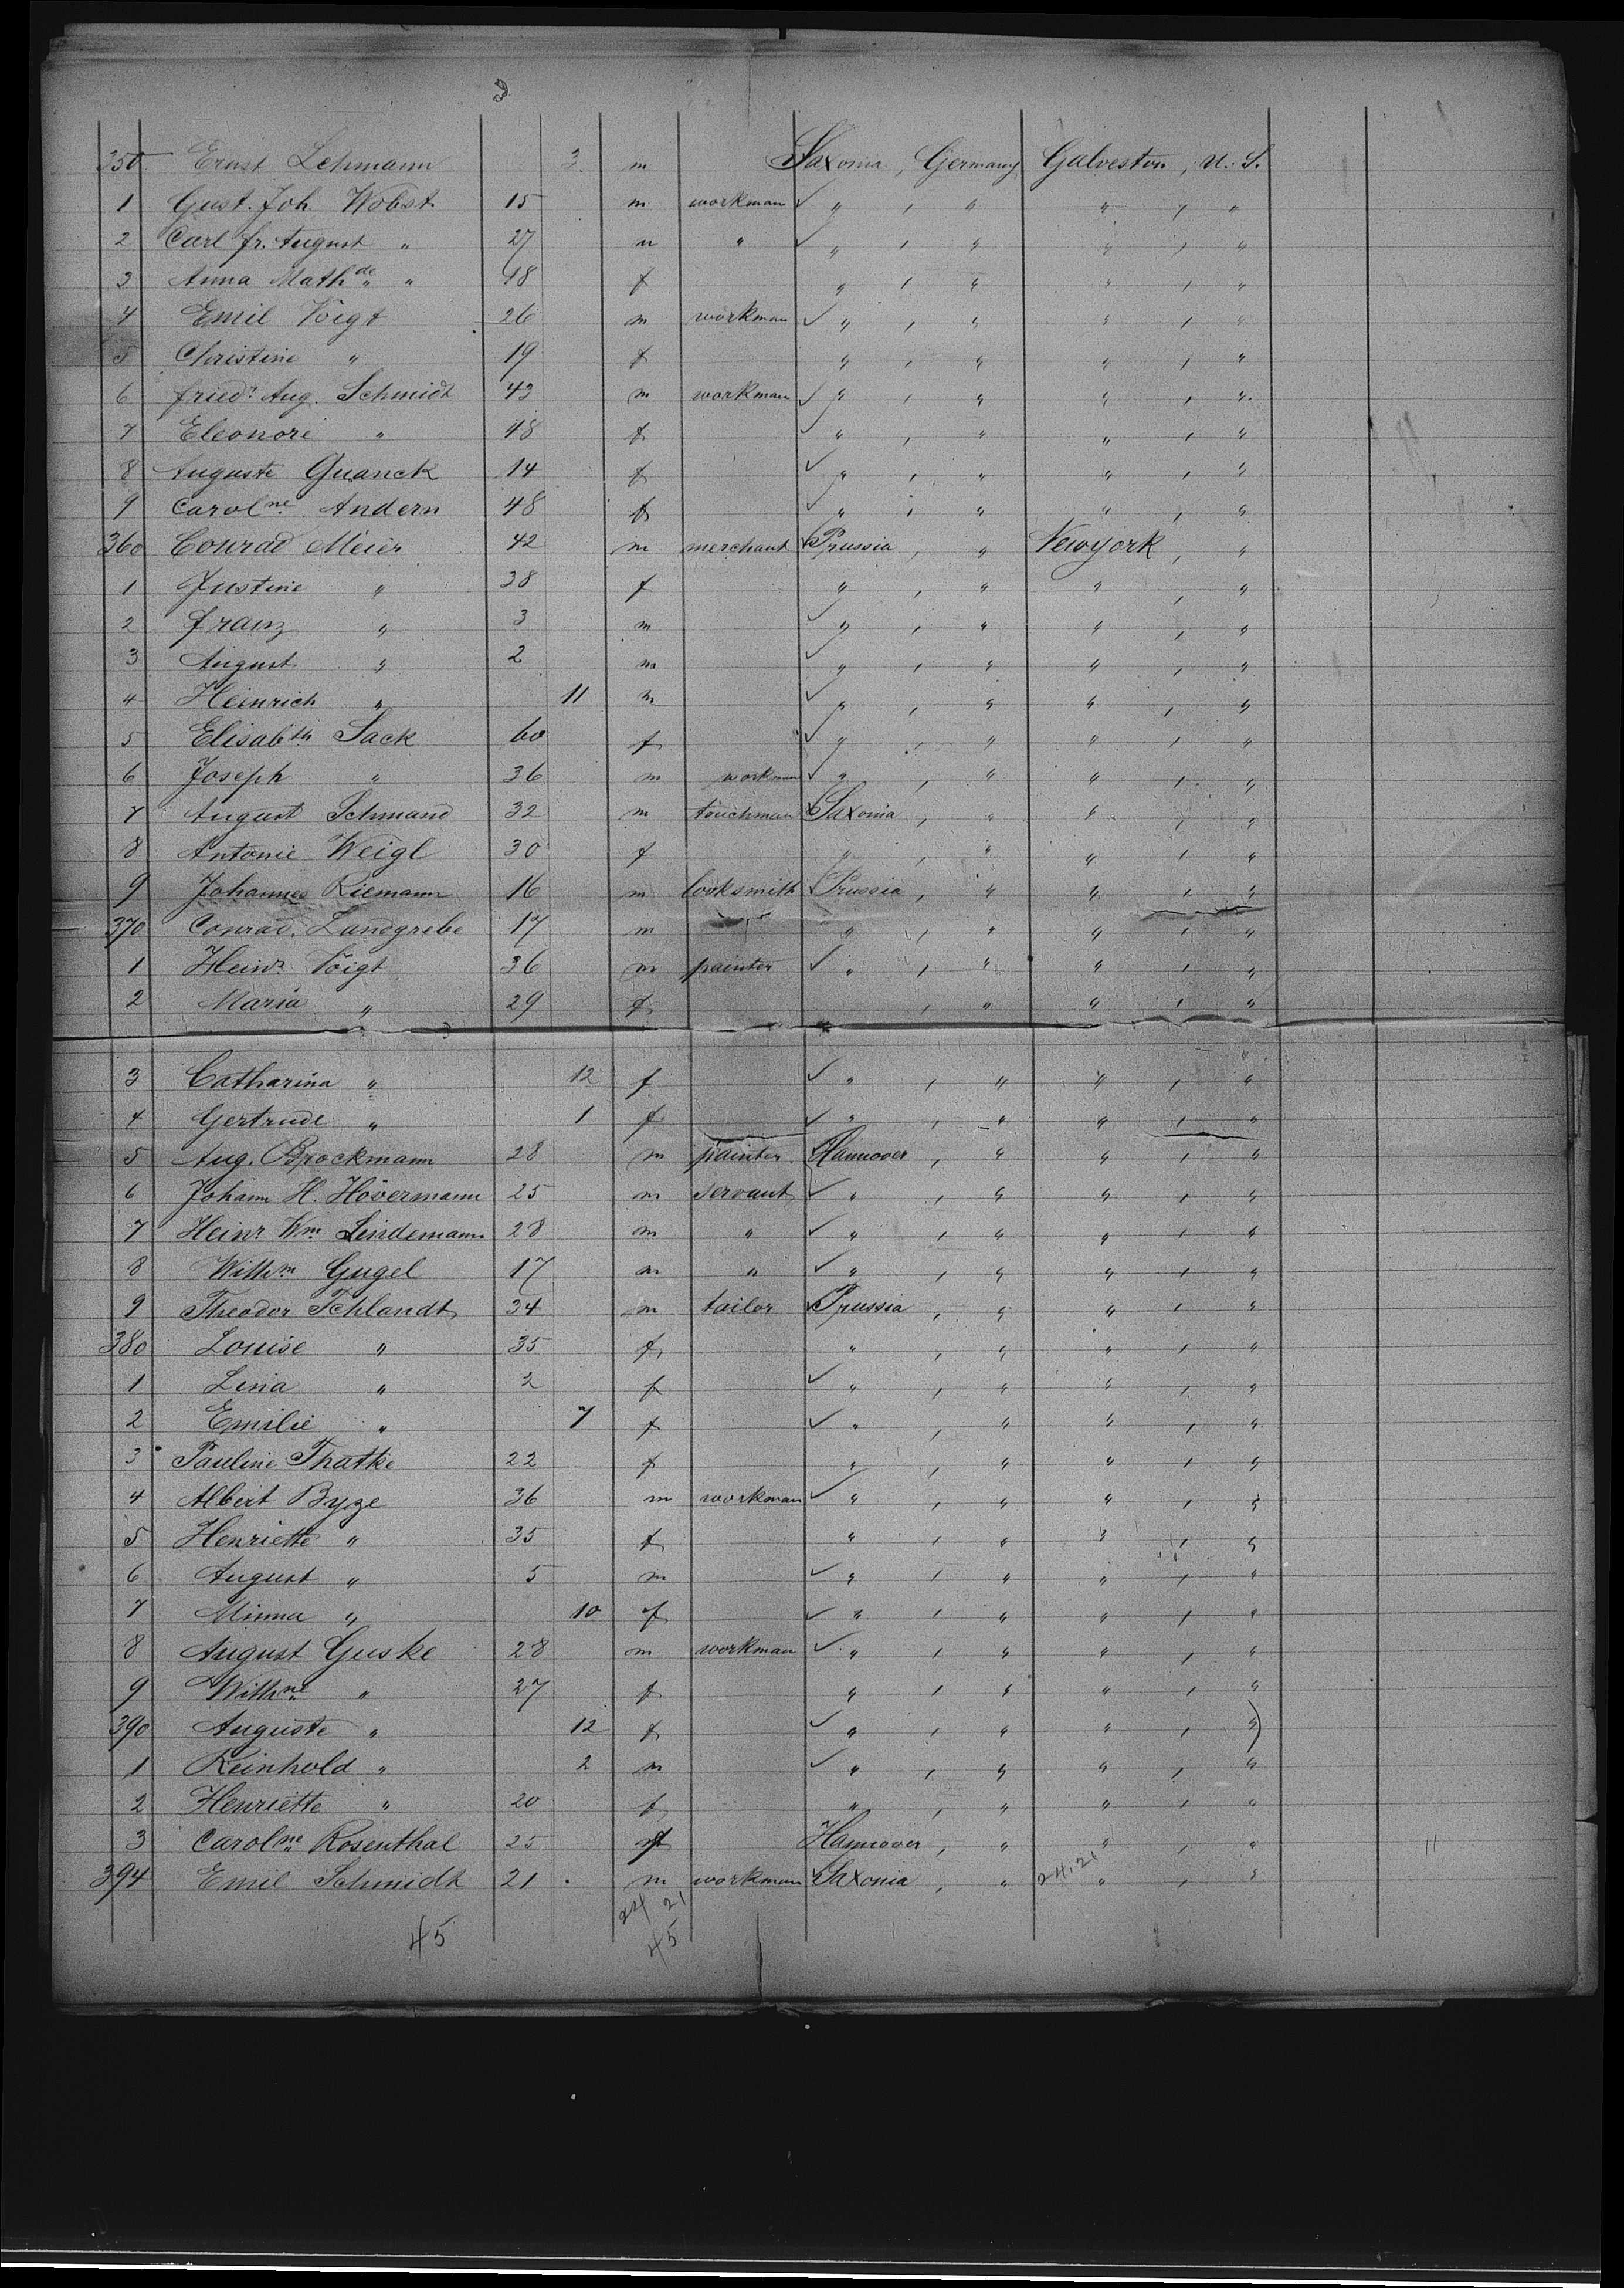 350 Ernst Lehmann 3 m Saxonia, Germany Galveston, U. S.
1 Gust. Joh. Wobst 15 m workman ✓ " , " " , "
2 Carl fr. August " 27 m " ✓ " , " " , "
3 Anna Mathde " 18 f " , " " , "
4 Emil Voigt 26 m workman ✓ " , " " , "
5 Christine " 19 f " , " " , "
6 friedr. Aug. Schmidt 43 m workman ✓ " , " " , "
7 Eleonore " 48 f ✓ " , " " , "
8 Auguste Quanck 14 f ✓ " , " " , "
9 Carolne Andern 48 f ✓ " , " " , "
360 Conrad Meier 42 m merchant ✓ Prussia, " Newyork, "
1 Justine " 38 f " , " " , "
2 franz " 3 m ✓ " , " " , "
3 August " 2 m ✓ " , " " , "
4 Heinrich " 11 m ✓ " , " " , "
5 Elisabth Sack 60 f ✓ " , " " , "
6 Joseph " 36 m workman ✓ " , " " , "
7 August Schmand 32 m touchman ✓ Saxonia, " " , "
8 Antonie Weigl 30 f " , " " , "
9 Johannes Riemann 16 m looksmith ✓ Prussia, " " , "
370 Conrad Landgrebe 17 m " , " " , "
1 Heinr. Voigt 36 m painter ✓ " , " " , "
2 Maria " 29 f , " " , "
3 Catharina " 12 f ✓ " , " " , "
4 Gertrude " 1 f ✓ " , " " , "
5 Aug. Brockmann 28 m painter ✓ Hannover, " " , "
6 Johann H. Hövermann 25 m servant ✓ " , " " , "
7 Heinr. Wm. Lindemann 28 m " ✓ " , " " , "
8 Wilhm Gugel 17 m " ✓ " , " " , "
9 Theodor Schlandt 34 m tailor ✓ Prussia, " " , "
380 Louise " 35 f " , " " , "
1 Lina " 2 f ✓ " , " " , "
2 Emilie " 7 f ✓ " , " " , "
3 Pauline Thatke 22 f " , " " , "
4 Albert Byze 36 m workman ✓ " , " " , "
5 Henriette " 35 f " , " " , "
6 August " 5 m ✓ " , " " , "
7 Minna " 10 f ✓ " , " " , "
8 August Guske 28 m workman ✓ " , " " , "
9 Wilhne " 27 f " , " " , "
390 Auguste " 12 f ✓ " , " " , "
1 Reinhold " 2 m ✓ " , " " , "
2 Henriette " 20 f " , " " , "
3 Carolne Rosenthal 25 f Hannover, " " , " 11
394 Emil Schmidt 21 m workman ✓ Saxonia, " 24.21 " , "
24 21
45 45